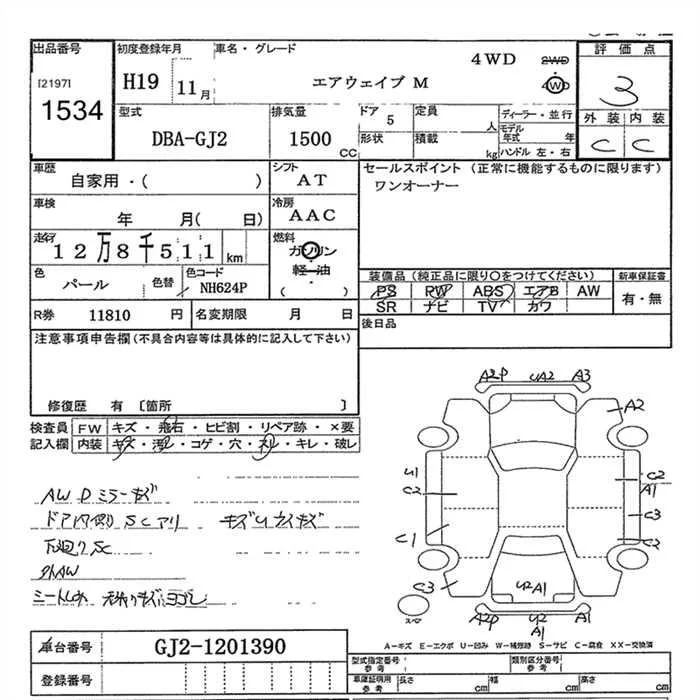 出品番号 初度登録年月 車名・グレード 4WD 2WD 評価点
[2197] H19 11月 エアウェイブ M 4WD 3
1534 型式 排気量 ドア 5 定員 人 ディーラー・並行 外装 内装
DBA-GJ2 1500 CC 形状 積載 kg モデル年式 年 C C
ハンドル 左・右
車歴 シフト セールスポイント (正常に機能するものに限ります)
自家用・( ) AT ワンオーナー
車検 冷房
年 月( 日) AAC
走行 燃料
12万8千511 km ガソリン
軽油
色 色替 色コード ( ) 装備品 (純正品に限り○をつけてください) 新車保証書
パール NH624P PS PW ABS エアB AW 有・無
SR ナビ TV カワ
R券 11810 円 名変期限 月 日 後日品
注意事項申告欄 (不具合内容等は具体的に記入して下さい)
修復歴 有 〔箇所 〕
検査員 FW キズ・飛石・ヒビ割・リペア跡・×要
記入欄 内装 キズ・汚レ・コゲ・穴・スレ・キレ・破レ
A2P UA2 A3
A2
U1 C2
C2 A1
C3
C1 C2
C3 U2 A1
A2P U2
A1
AW D ミラーキズ
ドア内張り SCアリ
下廻り SC
A-キズ E-エクボ U-凹み W-補修跡 S-サビ C-腐食 XX-交換済
車台番号 GJ2-1201390 型式指定番号 参考 類別区分番号 参考
登録番号 車庫証明用 参考 長さ cm 幅 cm 高さ cm